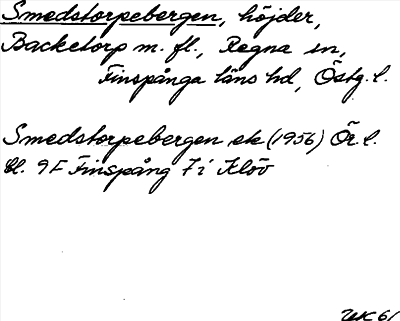 Smedstorpebergen, höjder,
Backetorp m. fl., Regna sn,
Finspånga läns hd, Östg. l.
Smedstorpebergen ek (1956) Ör. l.
bl. 9F Finspång 7i Klöv